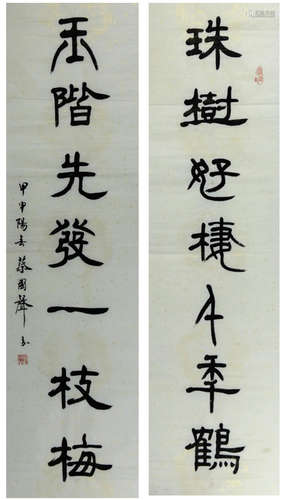 珠樹好棲千年鶴
玉階先發一枝梅
甲申陽春蔡國聲書